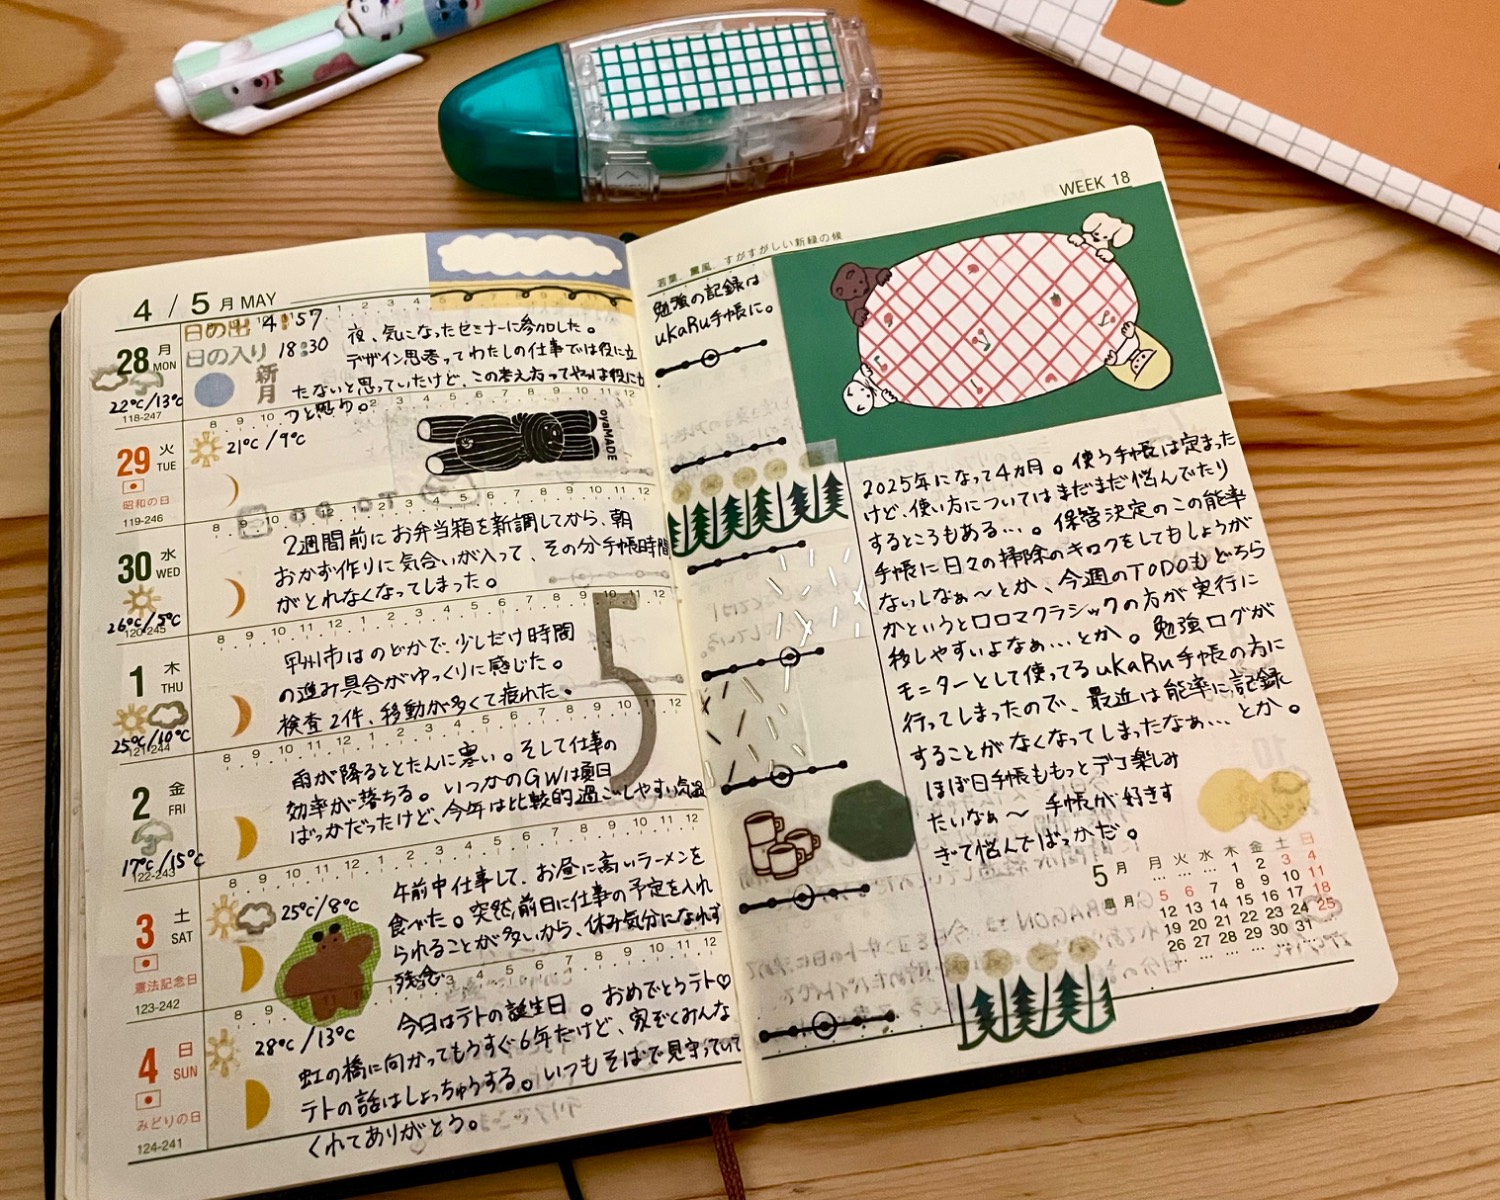 4 / 5 月 MAY
日の出 4:57
日の入り 18:30
新月
28 月 MON
22℃/13℃
118-247
夜、気になったセミナーに参加した。
デザイン思考ってわたしの仕事では役に立
たないと思っていたけど、この考え方って
うと思う。
29 火 TUE
昭和の日
119-246
21℃/9℃
oyaMADE
30 水 WED
26℃/5℃
120-245
2週間前にお弁当箱を新調してから、朝
おかず作りに気合いが入って、その分手帳時間
がとれなくなってしまった。
1 木 THU
25℃/10℃
121-244
甲州市はのどかで、少しだけ時間
の進み具合がゆっくりに感じた。
検査2件、移動が多くて疲れた。
5
2 金 FRI
17℃/15℃
122-243
雨が降るととたんに寒い。そして仕事の
効率が落ちる。いつかのGWは夏日
ばっかだったけど、今年は比較的過ごしやすい気温
3 土 SAT
憲法記念日
123-242
25℃/8℃
午前中仕事して、お昼に高いラーメンを
食べた。突然、前日に仕事の予定を入れ
られることが多いから、休み気分になれず
残念
4 日 SUN
みどりの日
124-241
28℃/13℃
今日はテトの誕生日。おめでとうテト♡
虹の橋に向かってもうすぐ6年だけど、家ぞくみんな
テトの話はしょっちゅうする。いつもそばで見守っていて
くれてありがとう。
WEEK 18
若葉、薫風、すがすがしい新緑の候
勉強の記録は
uKaRu手帳に。
2025年になって4カ月。使う手帳は定まった
けど、使い方についてはまだまだ悩んでたり
するところもある…。保管決定のこの能率
手帳に日々の掃除のキロクをしてもしょうが
ないしなぁ〜とか、今週のTODOもどちら
かというとロロマクラシックの方が実行に
移しやすいよなぁ…とか。勉強ログが
モニターとして使ってるuKaRu手帳の方に
行ってしまったので、最近は能率に記録
することがなくなってしまったなぁ…とか。
ほぼ日手帳ももっとデコ楽しみ
たいなぁ〜 手帳が好きす
ぎて悩んでばっかだ。
5月 皐月
月 火 水 木 金 土 日
… … … 1 2 3 4
5 6 7 8 9 10 11
12 13 14 15 16 17 18
19 20 21 22 23 24 25
26 27 28 29 30 31 …